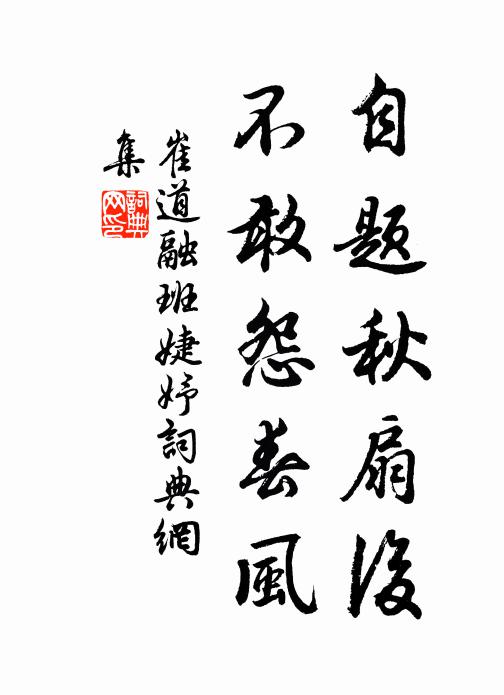 自题秋扇後
不敢怨春風
崔道融班婕妤詞典網
集
詞典网印